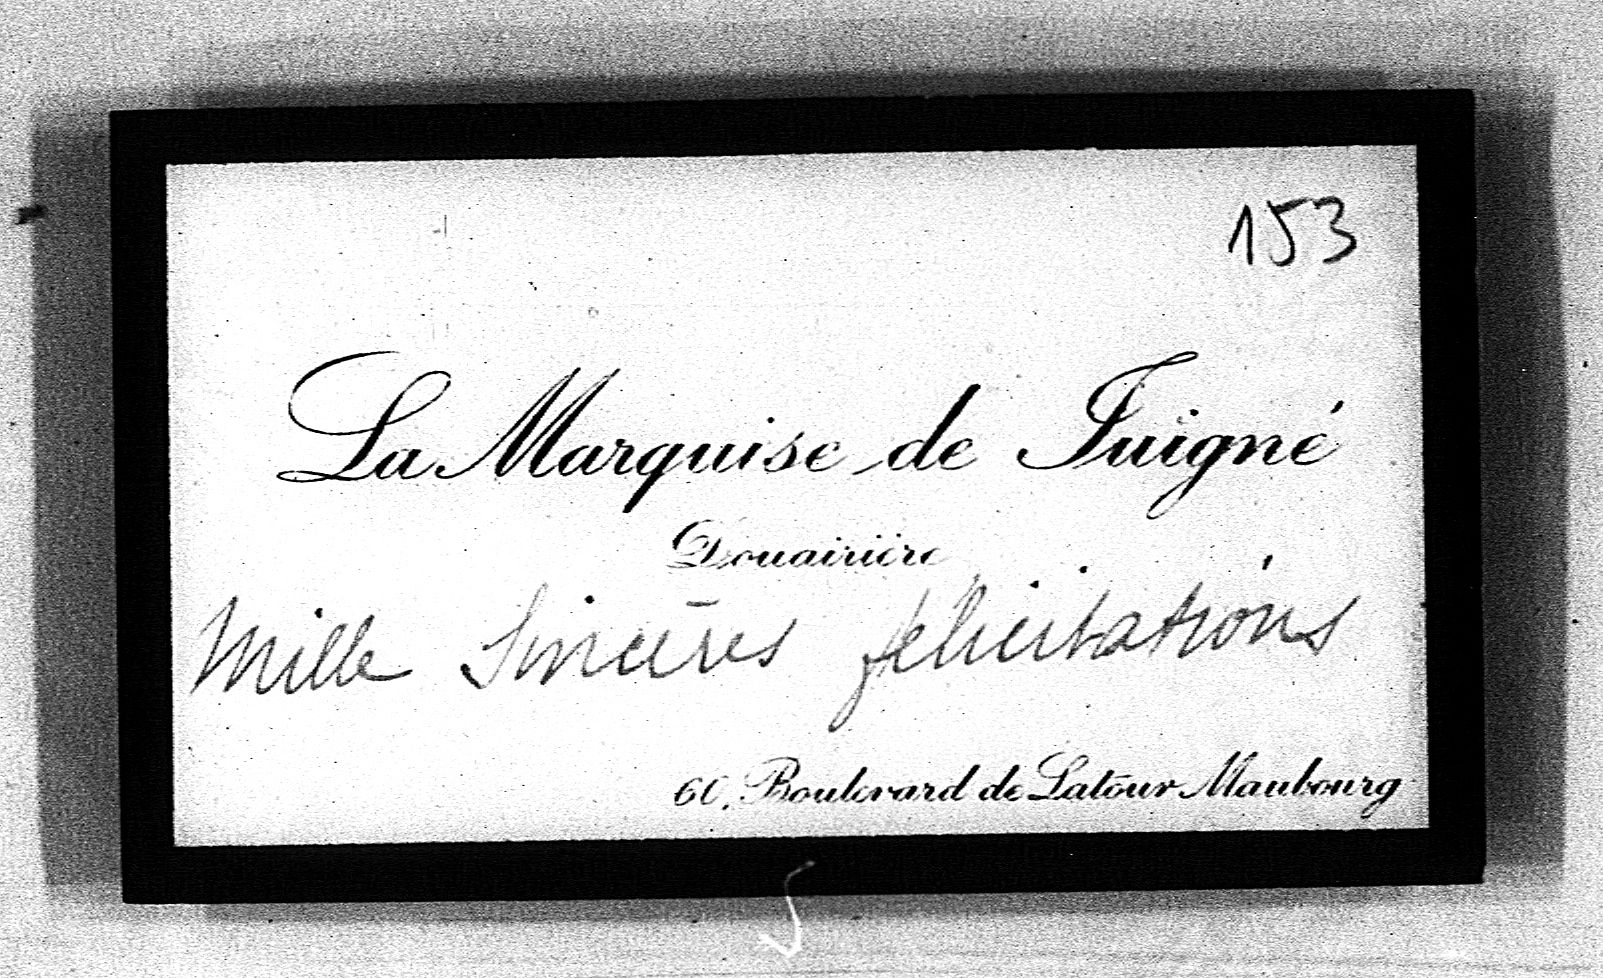 153
La Marquise de Juigné
Douairière
Mille sincères félicitations
60, Boulevard de Latour Maubourg